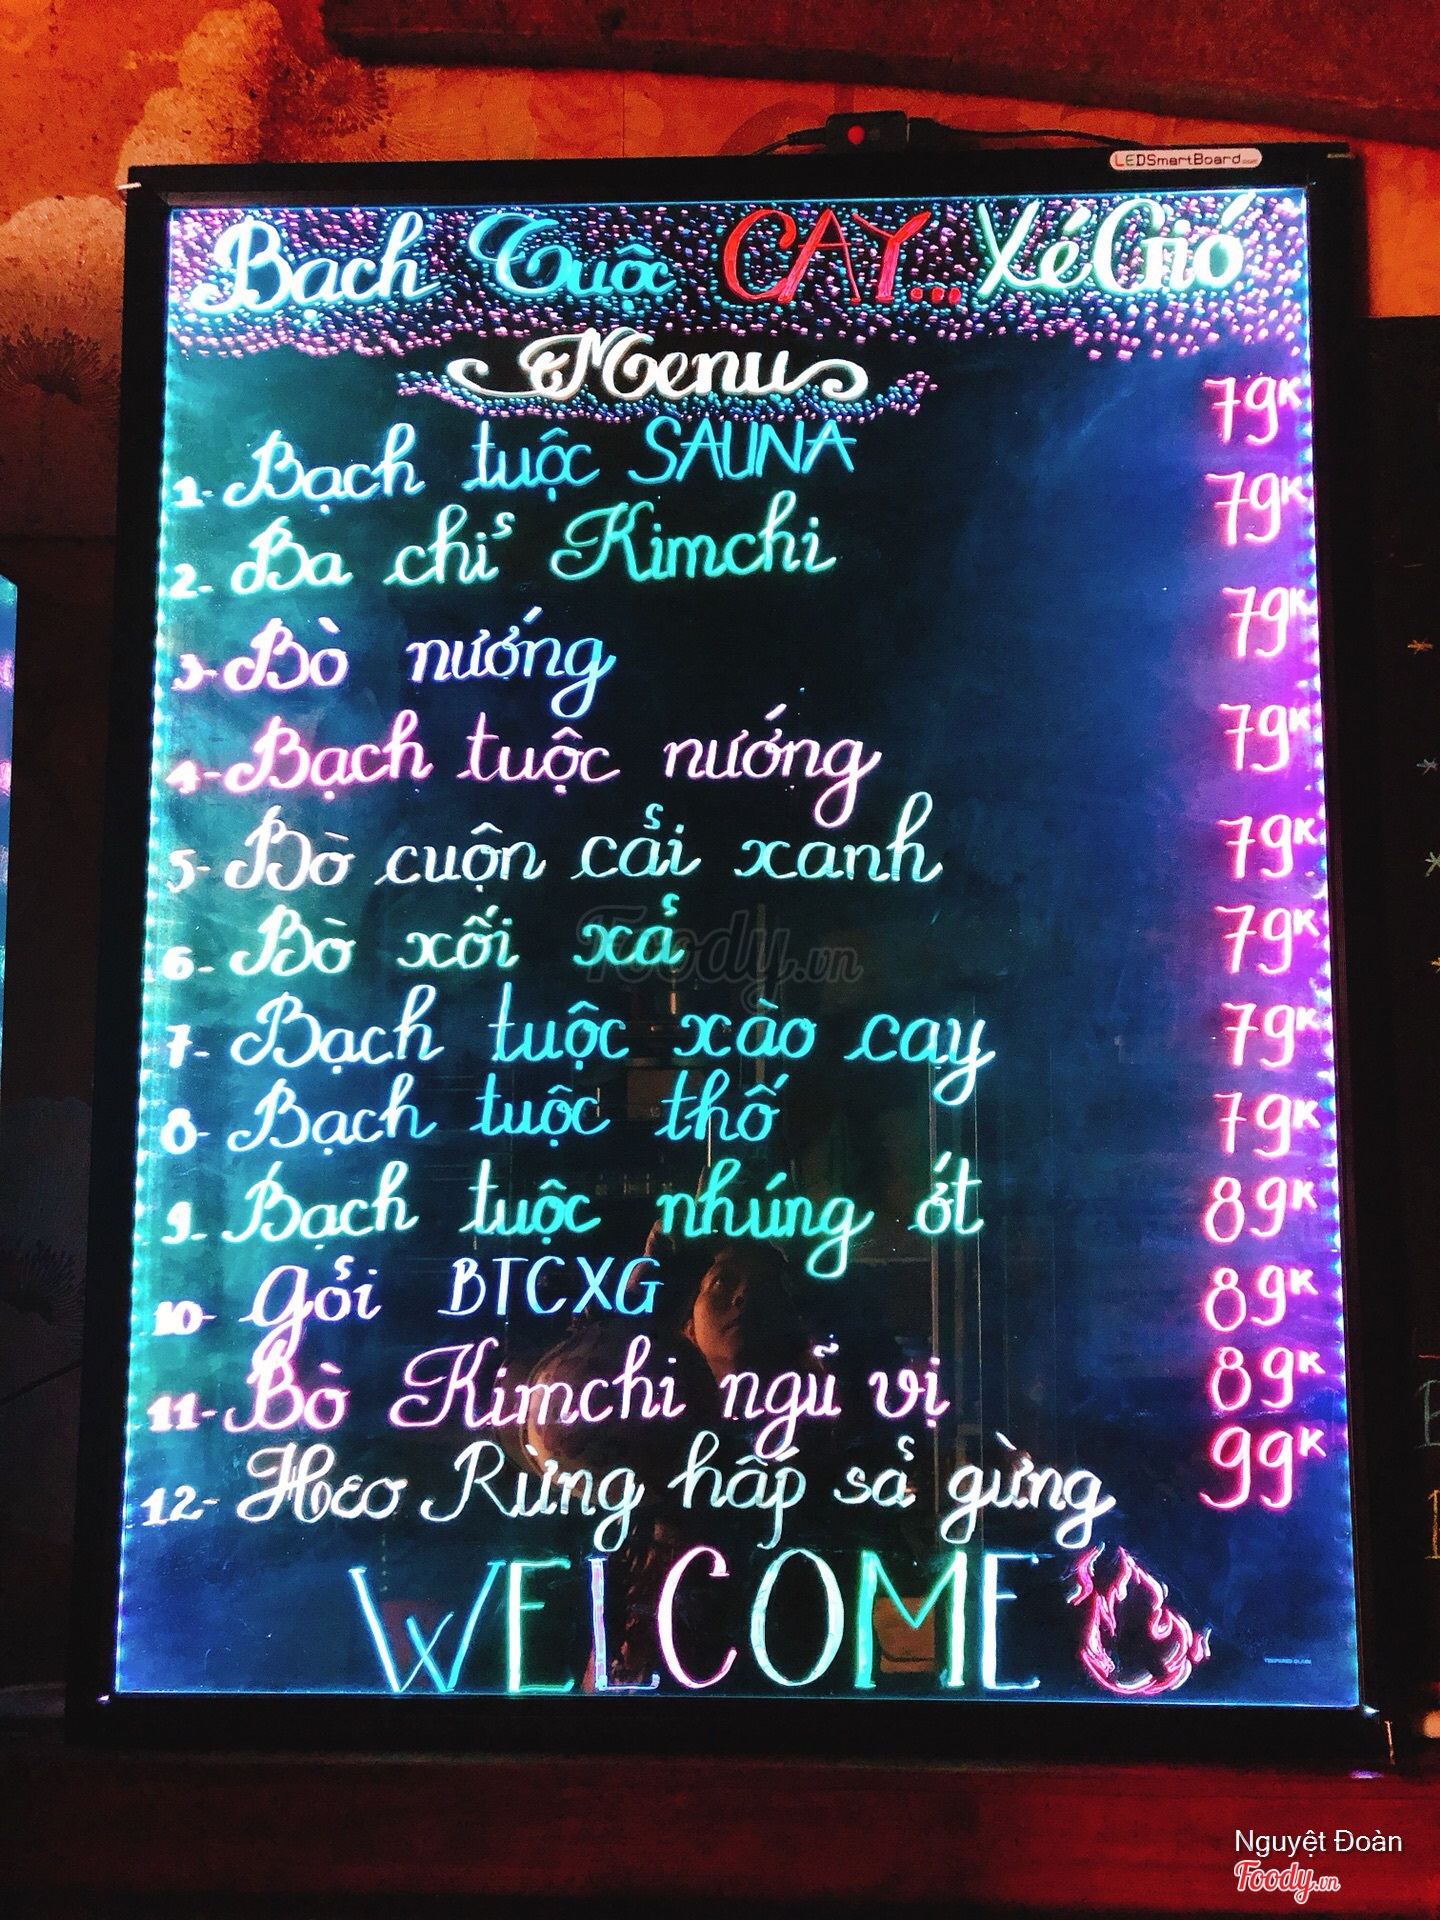 LEDSmartBoard.com
Bạch Tuộc CAY... Xé Gió
Menu
1- Bạch tuộc SAUNA 79K
2- Ba chỉ Kimchi 79K
3- Bò nướng 79K
4- Bạch tuộc nướng 79K
5- Bò cuộn cải xanh 79K
6- Bò xối xả 79K
7- Bạch tuộc xào cay 79K
8- Bạch tuộc thố 79K
9- Bạch tuộc nhúng ớt 89K
10- Gỏi BTCXG 89K
11- Bò Kimchi ngũ vị 89K
12- Heo Rừng hấp sả gừng 99K
WELCOME
TEMPERED GLASS
Foody.vn
Nguyệt Đoàn
Foody.vn